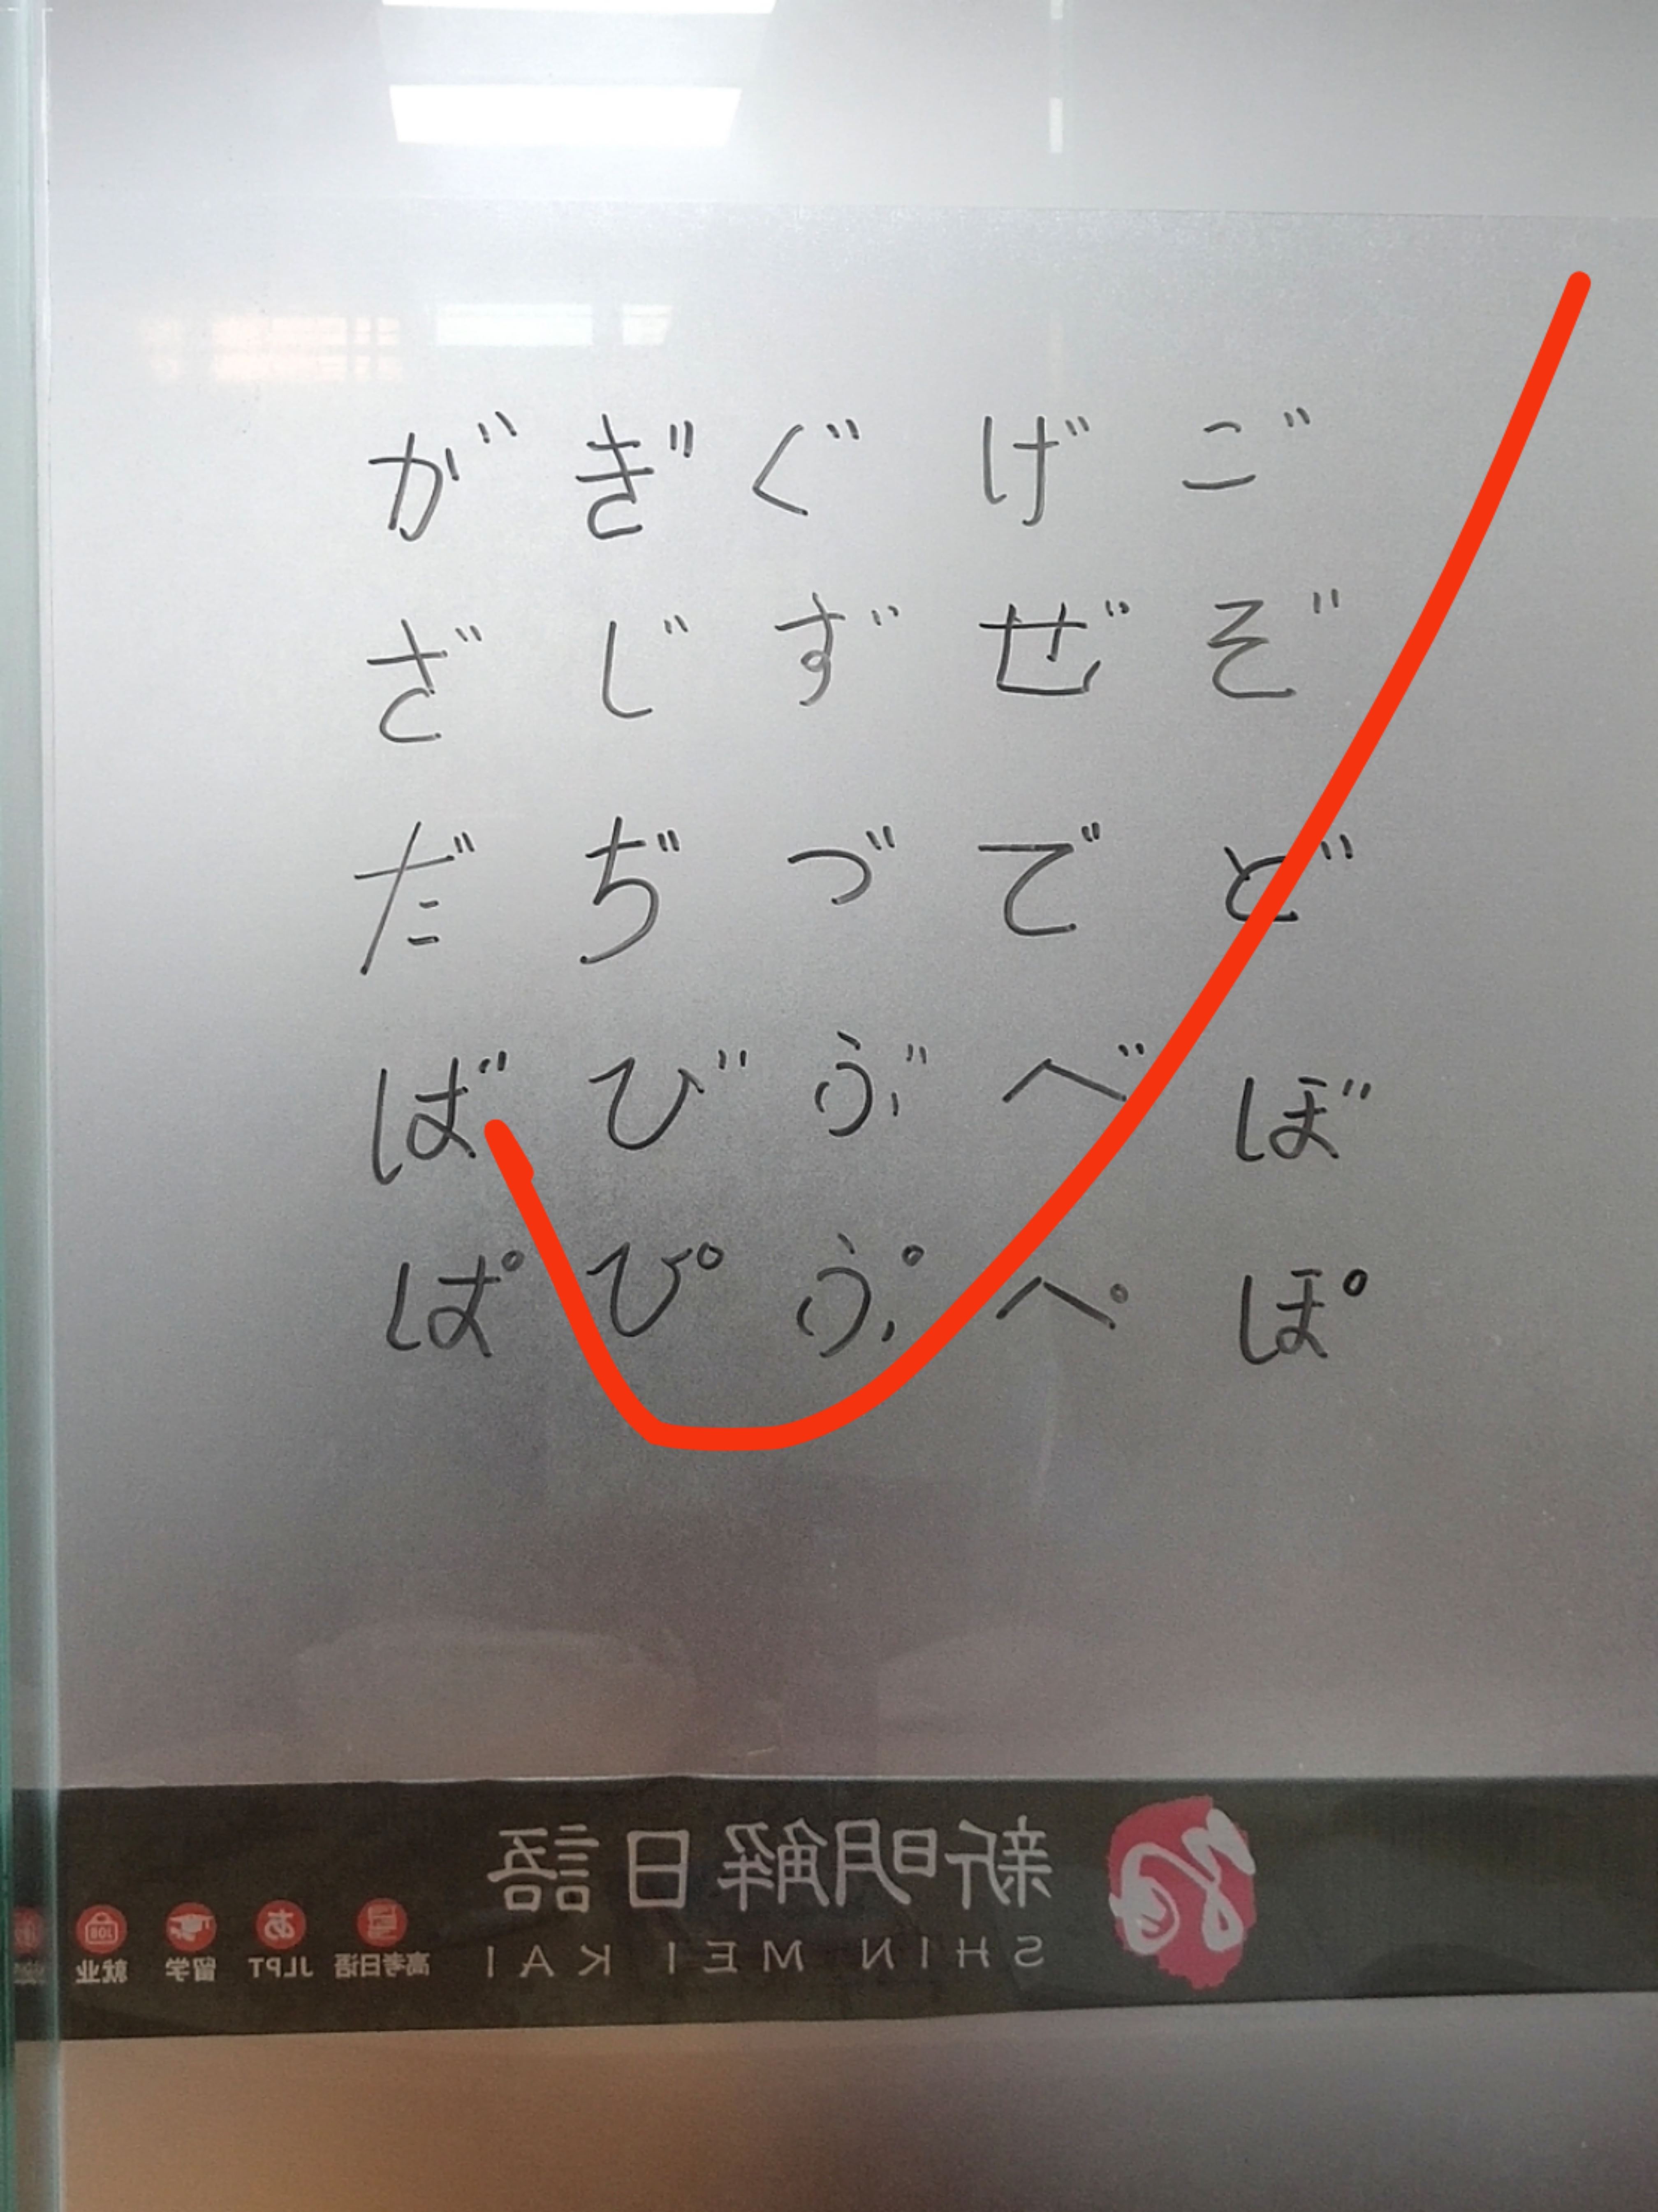 がぎぐげご
ざじずぜぞ
だぢづでど
ばびぶべぼ
ぱぴぷぺぽ
新明解日語
SHIN MEI KAI
高考日语 JLPT 留学 就业
あ
JOB